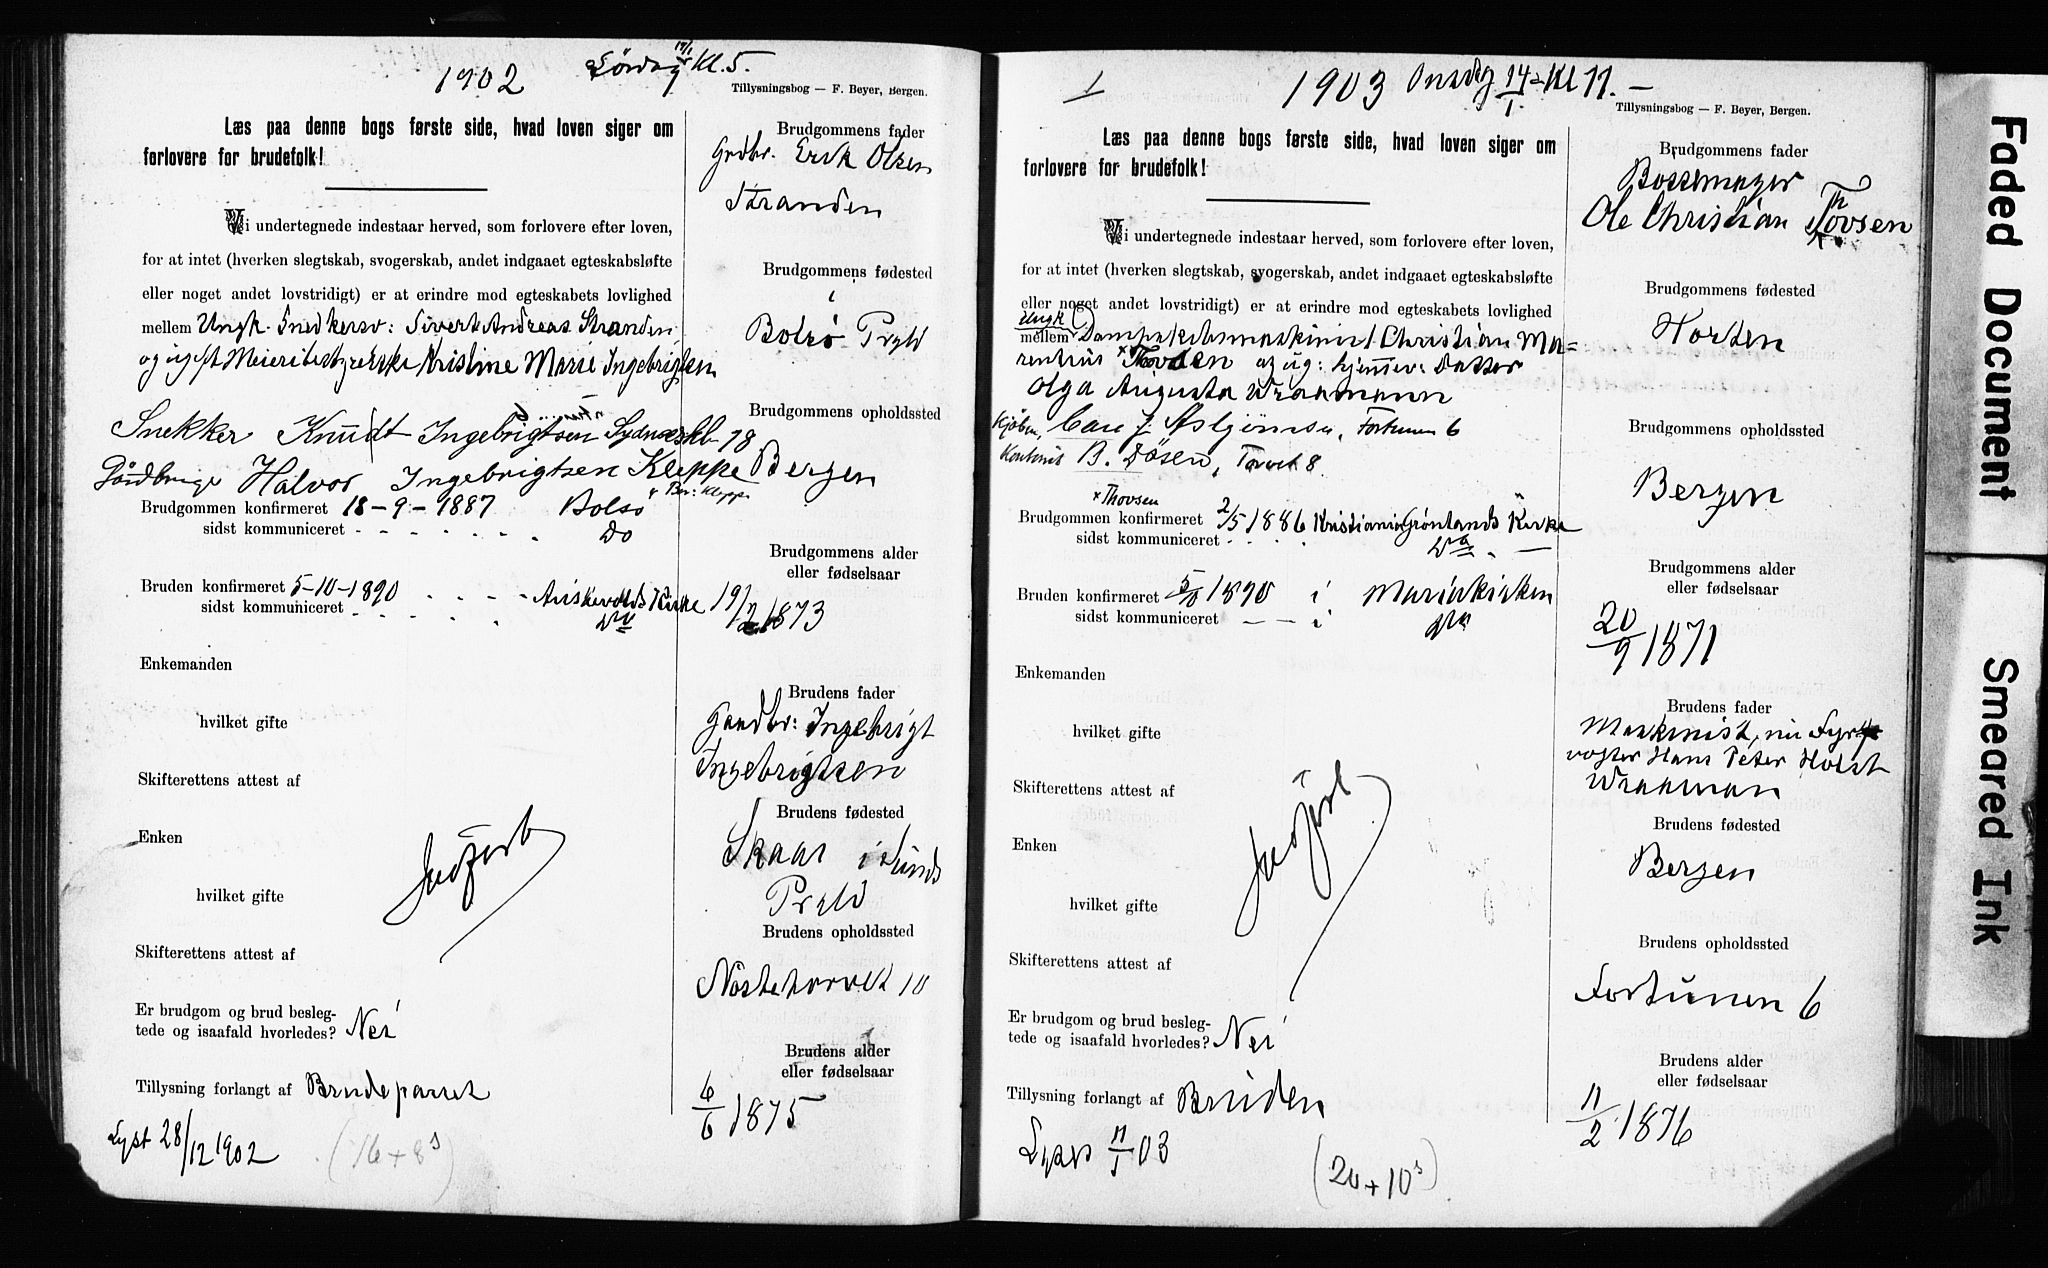 1902 Lördag 17/1 Kl. 5.
Tillysningsbog — F. Beyer, Bergen.
Læs paa denne bogs første side, hvad loven siger om
forlovere for brudefolk!
Vi undertegnede indestaar herved, som forlovere efter loven,
for at intet (hverken slegtskab, svogerskab, andet indgaaet egteskabsløfte
eller noget andet lovstridigt) er at erindre mod egteskabets lovlighed
mellem Ungk. Snedkersv: Sivert Andreas Stranden
og ug: Meieribestyrerske Kristine Marie Ingebrigtsen
Snekker Knudt Ingebrigtsen 18
Halvor Ingebrigtsen Kleppe
Brudgommen konfirmeret 18-9-1887 Bolsö
sidst kommuniceret Do
Bruden konfirmeret 5-10-1890 Kirke
sidst kommuniceret Do
Enkemanden
hvilket gifte
Skifterettens attest af
Enken
hvilket gifte
Skifterettens attest af
Er brudgom og brud besleg-
tede og isaafald hvorledes? Nei
Tillysning forlangt af Brudeparret
Lyst 28/12 1902 (16+8s)
Brudgommens fader
Grdbr. Erik Olsen
Stranden
Brudgommens fødested
i
Bolsö Prgld
Brudgommens opholdssted
Bergen
Brudgommens alder
eller fødselsaar
19/7 1873
Brudens fader
Gaardbr: Ingebrigt
Ingebrigtsen
Brudens fødested
Skaar i Sunds
Prgld
Brudens opholdssted
Nöstetorvet 10
Brudens alder
eller fødselsaar
6/6 1875
1 1903 Onsdag 14/1 Kl 11. —
Tillysningsbog — F. Beyer, Bergen.
Læs paa denne bogs første side, hvad loven siger om
forlovere for brudefolk!
Vi undertegnede indestaar herved, som forlovere efter loven,
for at intet (hverken slegtskab, svogerskab, andet indgaaet egteskabsløfte
eller noget andet lovstridigt) er at erindre mod egteskabets lovlighed
Ungk
mellem Dampskibsmaskinist Christian Ma=
rentius × Thovsen og ug: hjemmev: Datter
Olga Augusta Wraamann
Kjøbm. Asbjörnsen, Fortunen 6
Kontorist B. Dösen, Torvet 8
× Thovsen
Brudgommen konfirmeret 2/5 1886 Kristiania Grönlands Kirke
sidst kommuniceret Do
Bruden konfirmeret 5/10 1890 i Mariakirken
sidst kommuniceret i Do
Enkemanden
hvilket gifte
Skifterettens attest af
Enken
hvilket gifte
Skifterettens attest af
Er brudgom og brud besleg-
tede og isaafald hvorledes? Nei
Tillysning forlangt af Bruden
11/1 03
(20+10s)
Brudgommens fader
Bössemager
Ole Christian Thovsen
Brudgommens fødested
Horten
Brudgommens opholdssted
Bergen
Brudgommens alder
eller fødselsaar
20/9 1871
Brudens fader
Maskinist, nu Fyr
vogter Hans Peter Holst
Wraaman
Brudens fødested
Bergen
Brudens opholdssted
Fortunen 6
Brudens alder
eller fødselsaar
11/2 1876
Faded Document
Smeared Ink